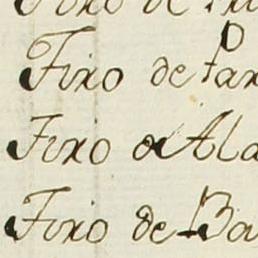 Fixo de
Fixo de Par
Fixo a Ala
Fixo de Ba